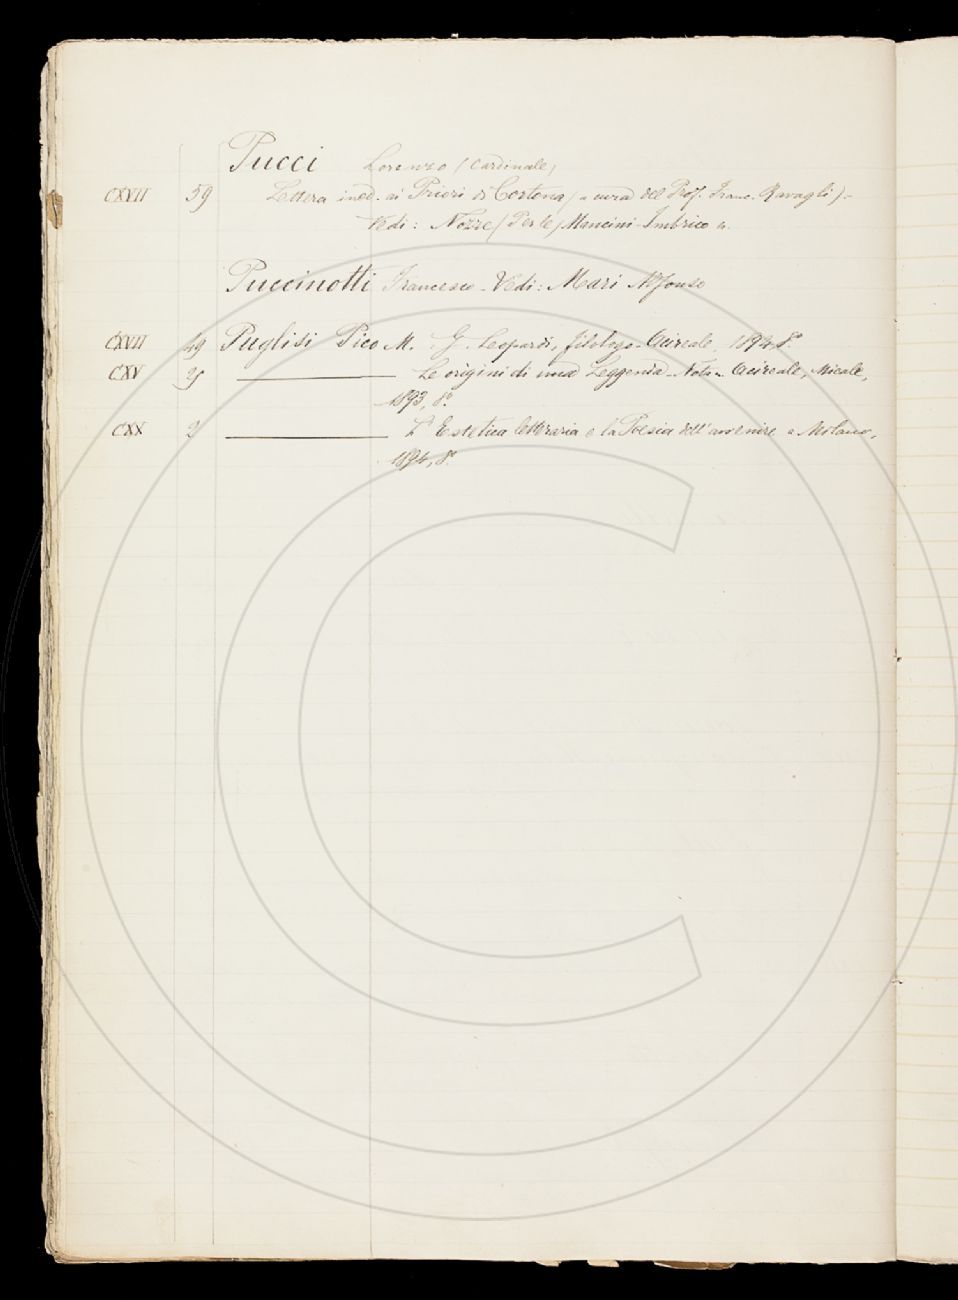 Pucci Lorenzo (Cardinale)
CXVII 59 Lettera ined. ai Priori di Cortona (a cura del Prof. Franc. Ravagli).-
Vedi: Nozze (Per le) Mancini-Imbrico
Puccinotti Francesco - Vedi: Mari Alfonso
CXVII 49 Puglisi Pico M. G. Leopardi, filologo - Acireale 1894, 8°.
CXV Le origini di una Leggenda - Nota - Acireale, Micale,
1893, 8°.
CXX 2 L'Estetica letteraria e la Poesia dell'avvenire - Milano,
1894, 8°.